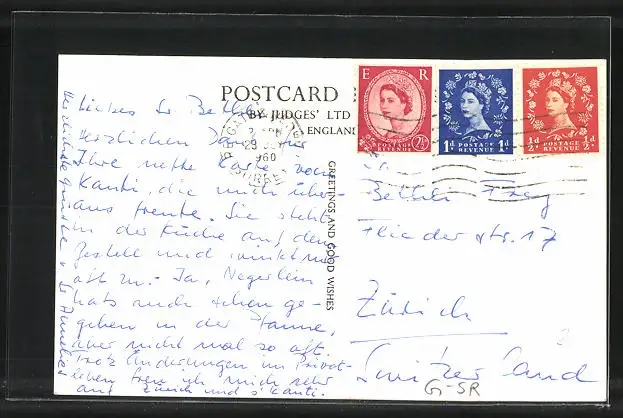 POSTCARD
BY JUDGES' LTD
ENGLAND
GREETINGS AND GOOD WISHES
E R
2½d
POSTAGE REVENUE
1d POSTAGE REVENUE 1d
½d POSTAGE REVENUE ½d
1960
SURREY
Liebes Sr. Bethli
Herzlichen Dank für
Ihre nette Karte vom
Kanti, die mich über-
aus freute. Sie steht
in der Küche auf dem
Gestell und winkt mir
oft zu. - Ja, Negerlein
hats auch schon ge-
geben in der Pfanne,
aber nicht mal so oft.
Trotz Änderungen im Privat-
leben freu ich mich sehr
auf Zürich und s'Kanti.
Herzlichste
Sr.
Bethli Frey
Fliederstr. 17
Zürich
Switzerland
G-SR